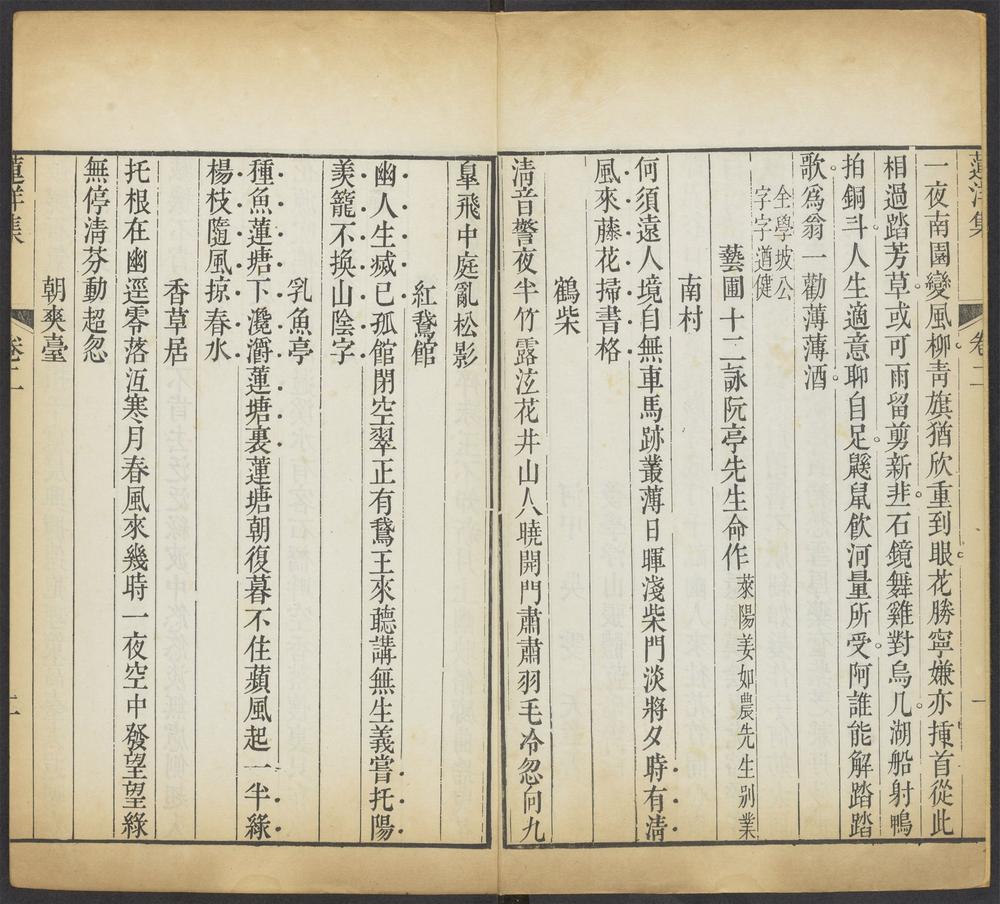 蓮洋集
卷二
一
一夜南園變風柳青旗猶欣重到眼花勝寧嫌亦揰首從此
相過踏芳草或可雨留剪新韭石鏡舞雞對烏几湖船射鴨
拍銅斗人生適意聊自足鼴鼠飲河量所受阿誰能解踏踏
歌爲翁一勸薄薄酒
全學坡公
字字遒健
藝圃十二詠阮亭先生命作萊陽姜如農先生別業
南村
何須遠人境自無車馬跡叢薄日暉淺柴門淡將夕時有清
風來藤花掃書格
鶴柴
清音警夜半竹露泫花井山人曉開門肅肅羽毛冷忽向九
皐飛中庭亂松影
紅鵞館
幽人生滅已孤館閉空翠正有鵞王來聽講無生義嘗托陽
羡籠不換山陰字
乳魚亭
種魚蓮塘下瀺灂蓮塘裏蓮塘朝復暮不住蘋風起一半綠
楊枝隨風掠春水
香草居
托根在幽逕零落沍寒月春風來幾時一夜空中發望望綠
無停淸芬動超忽
朝爽臺
蓮洋集
卷二
二